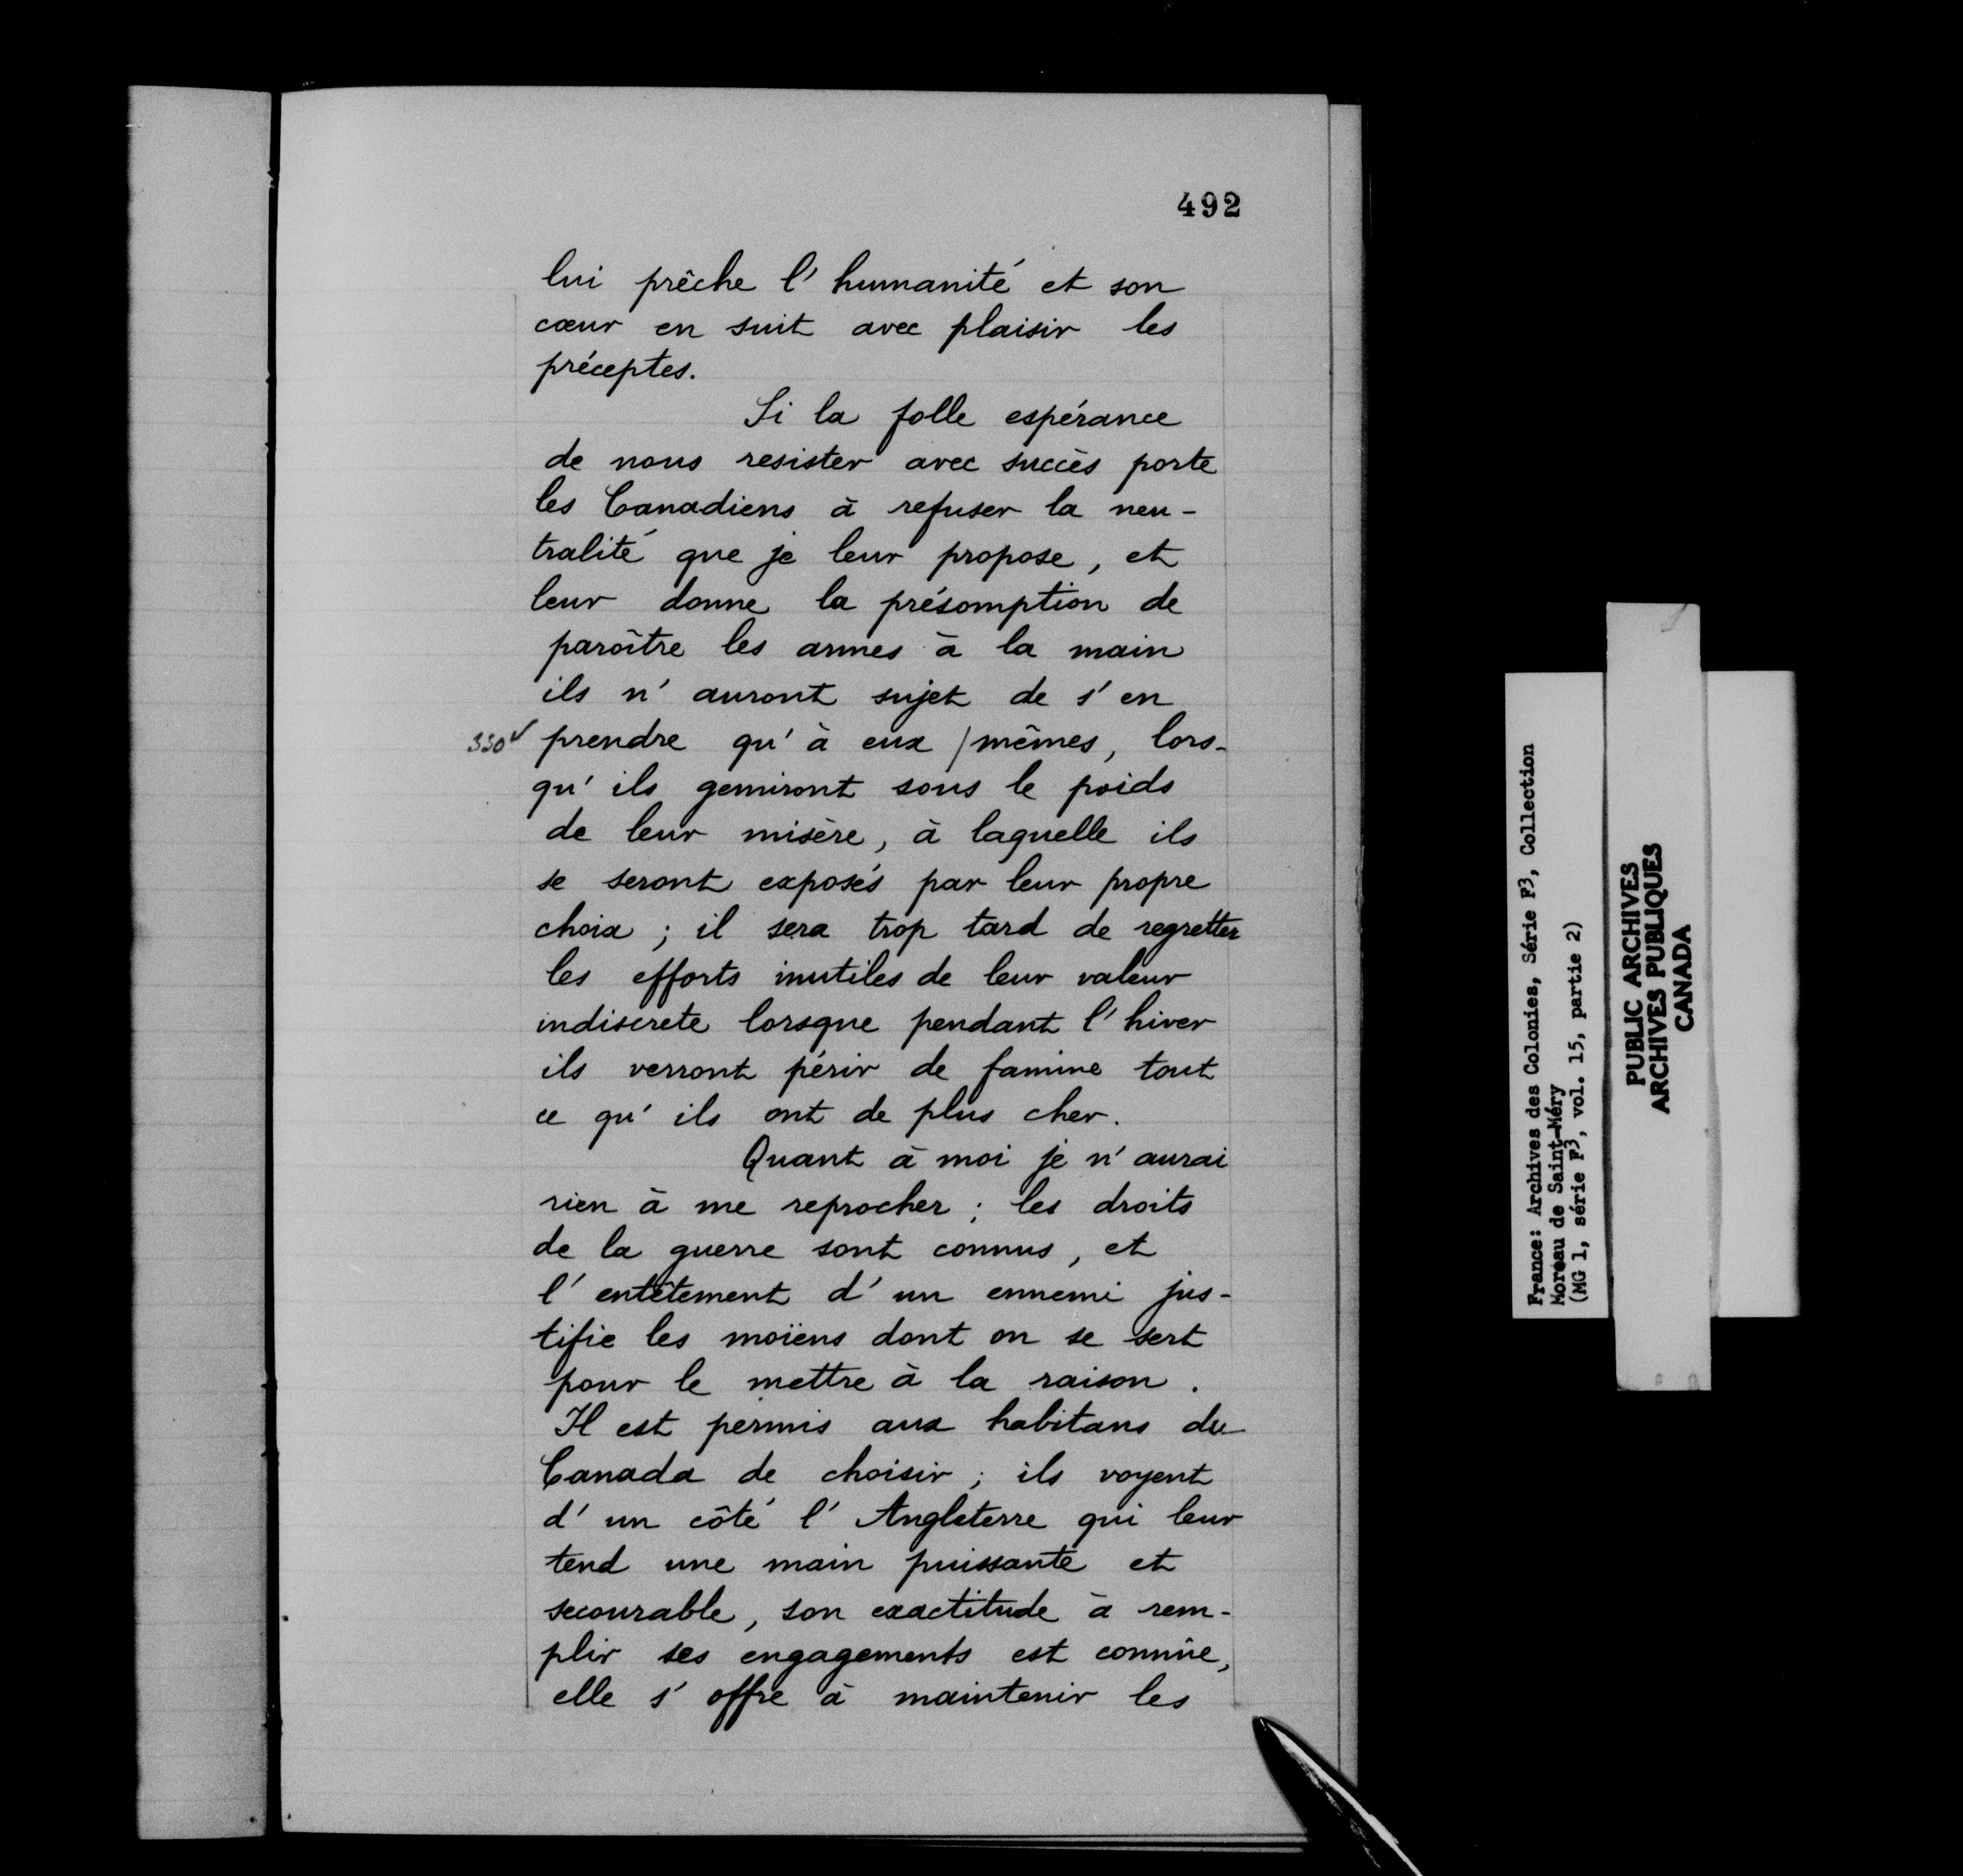 492
lui prêche l'humanité et son
cœur en suit avec plaisir les
préceptes.
Si la folle espérance
de nous resister avec succès porte
les Canadiens à refuser la neu-
tralité que je leur propose, et
leur donne la présomption de
paroître les armes à la main
ils n'auront sujet de s'en
330v prendre qu'à eux / mêmes, lors-
qu'ils gemiront sous le poids
de leur misère, à laquelle ils
se seront exposés par leur propre
choix ; il sera trop tard de regretter
les efforts inutiles de leur valeur
indiscrete lorsque pendant l'hiver
ils verront périr de famine tout
ce qu'ils ont de plus cher.
Quant à moi je n'aurai
rien à me reprocher ; les droits
de la guerre sont connus, et
l'entêtement d'un ennemi jus-
tifie les moïens dont on se sert
pour le mettre à la raison.
Il est permis aux habitans du
Canada de choisir ; ils voyent
d'un côté l'Angleterre qui leur
tend une main puissante et
secourable, son exactitude à rem-
plir ses engagements est connüe,
elle s'offre à maintenir les
France: Archives des Colonies, Série F3, Collection
Moreau de Saint-Méry
(MG 1, série F3, vol. 15, partie 2)
PUBLIC ARCHIVES
ARCHIVES PUBLIQUES
CANADA